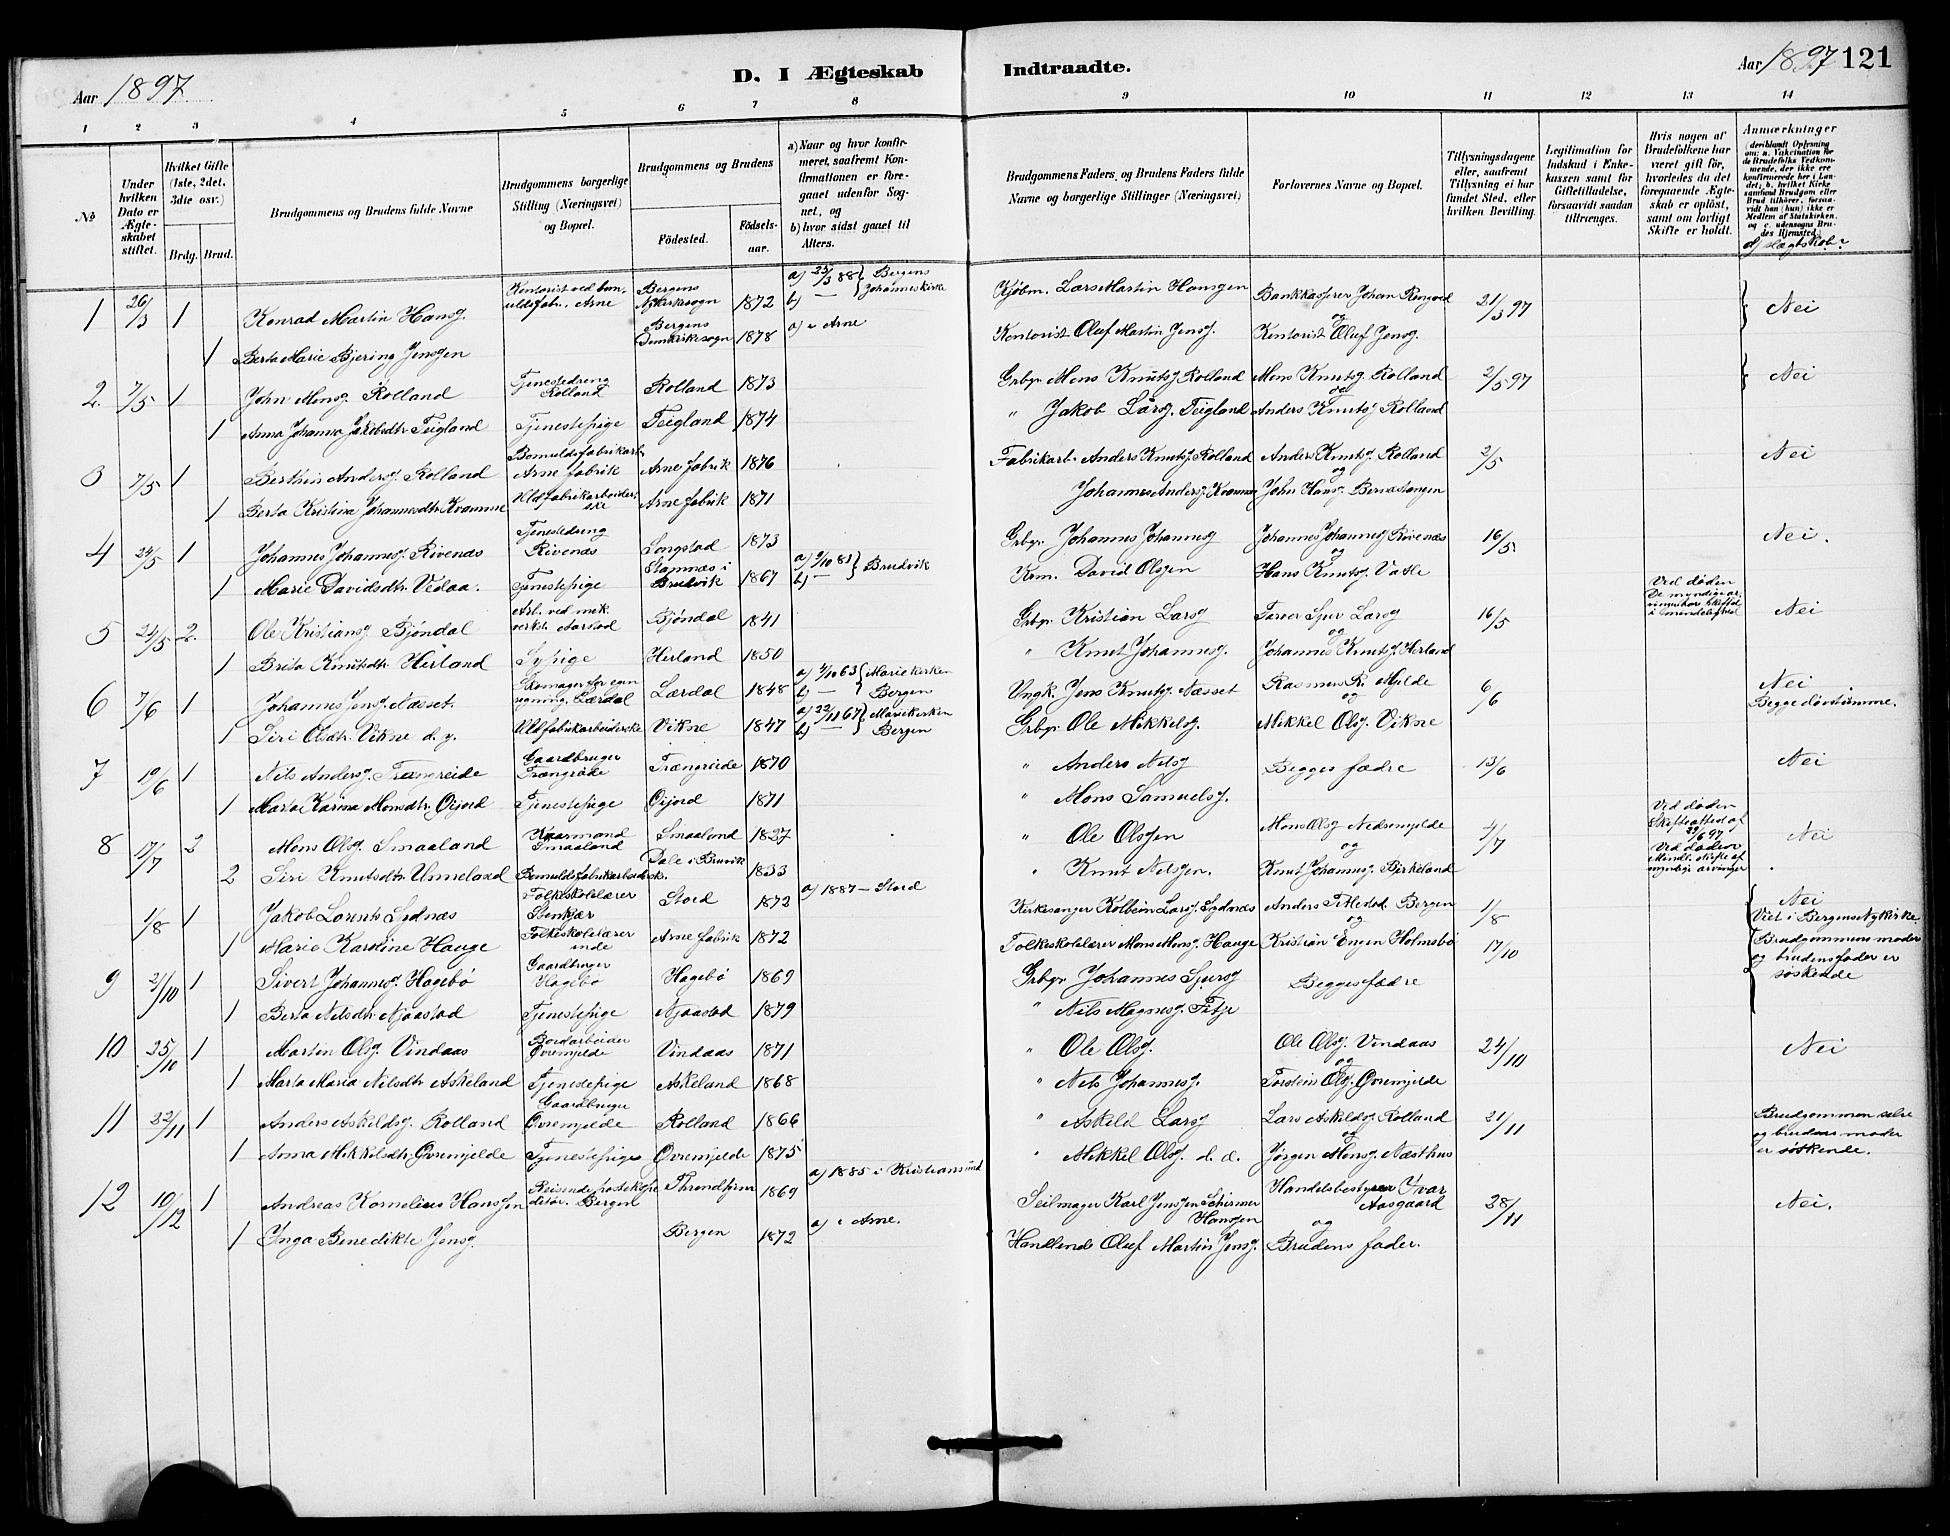 Aar 1897
D. I Ægteskab Indtraadte.
Aar 1897 121
1 2 3 4 5 6 7 8 9 10 11 12 13 14
№
Under hvilken Dato er Ægteskabet stiftet.
Hvilket Gifte (1ste, 2det, 3die osv.)
Brdg. Brud.
Brudgommens og Brudens fulde Navne
Brudgommens borgerlige Stilling (Næringsvei) og Bopæl.
Brudgommens og Brudens
Födested.
Födselsaar.
a) Naar og hvor konfirmeret, saafremt Konfirmationen er foregaaet udenfor Sognet, og
b) hvor sidst gaaet til Alters.
Brudgommens Faders, og Brudens Faders fulde Navne og borgerlige Stillinger (Næringsvei)
Forlovernes Navne og Bopæl.
Tillysningsdagene eller, saafremt Tillysning ei har fundet Sted, efter hvilken Bevilling.
Legitimation for Indskud i Enkekassen samt for Giftetilladelse, forsaavidt saadan tiltrænges.
Hvis nogen af Brudefolkene har været gift för, hvorledes da det foregaaende Ægteskab er oplöst, samt om lovligt Skifte er holdt.
Anmærkninger (deriblandt Oplysning om: a. Vakcination for de Brudefolks Vedkommende, der ikke ere konfirmerede her i Landet; b. hvilket Kirkesamfund Brudgom eller Brud tilhörer, forsaavidt han (hun) ikke er Medlem af Statskirken, og c. udensogns Brudes Hjemsted.)
d) Slægtskab?
1 26/3 1 Konrad Martin Hansg. Kontorist ved bomuldsfabr. Arne Bergens Nykirkesogn 1872 a) 25/3 88 b) — Bergens Johanneskirke Kjøbm. Lars Martin Hansgen Bankkasserer Johan Ringvold og 21/3 97 Nei
1 Berta Marie Bjering Jensgen Bergens Domkirkesogn 1878 a) i Arne Kontorist Oluf Martin Jensg. Kontorist Oluf Jensg.
2. 7/5 1 John Monsg. Rolland Tjenestedreng Rolland Rolland 1873 Grbgr. Mons Knutsg. Rolland Mons Knutsg. Rolland og 2/5 97 Nei
1 Anna Johanna Jakobsdtr. Teigland Tjenestepige Teigland 1874 " Jakob Larsg. Teigland Anders Knutsg. Rolland
3 7/5 1 Berthin Andersg. Rolland Bomuldsfabrikarb. Arne fabrik Arne fabrik 1876 Fabrikarb. Anders Knutsg. Rolland Anders Knutsg. Rolland og 2/5 Nei
1 Berta Kristina Johannesdtr. Kvamme Uldfabrikarbeiderske Arne fabrik 1871 Johannes Andersg. Kvamme John Hansg. Bernastangen
4 24/5 1 Johannes Johannesg. Rivenæs Tjenestedreng Rivenæs Songstad 1873 Grbgr. Johannes Johannesg Johannes Johannesg. Rivenæs og 16/5 Nei.
1 Marie Davidsdtr. Vedaa. Tjenestepige Stamnæs i Brudvik 1867 a) 9/10 81 b) — Brudvik Krm. David Olsgen Hans Knutsg. Vatle
5 24/5 2. Ole Kristiansg. Bjöndal Arb. ved mek. verkt. Aarstad Bjöndal 1841 Grbgr. Kristian Larsg og 16/5 Ved døden Nei
1 Brita Knutsdtr. Herland Sypige Herland 1850 " Knut Johannesg. Johannes Knutsg. Herland
6 7/6 1 Johannes Jensg. Næsset. Skomager for egn regning. Lærdal Lærdal 1848 a) 4/10 63 b) — Mariekirken Bergen Ungk. Jens Knutsg. Næsset Rasmus R. Mjelde og 6/6 Nei Begge døvstumme.
1 Siri Olsdtr. Vikne d. y. Uldfabrikarbeiderske Vikne 1847 a) 22/11 67 b) — Mariekirken Bergen Grbgr. Ole Mikkelsg. Mikkel Olsg. Vikne
7 19/6 1 Nils Andersg. Trængreide Gaardbruger Trængreide Trængreide 1870 " Anders Nilsg Begges fædre 13/6 Nei
1 Marta Karina Monsdtr. Øijord Tjenestepige Øijord 1871 " Mons Samuelsg.
8 17/7 2 Mons Olsg. Smaaland Kaarmand Smaaland Smaaland 1827 " Ole Olsgen Mons Olsg Nedremjelde og 4/7 Ved døden Skifteattest af 29/6 97 Nei
2 Siri Knutsdtr. Unneland Bomuldsfabrikarbeidersk. Dale i Bruvik 1833 " Knut Nilsgen. Knut Johannesg. Birkeland Ved døden Mindl. skifte af myndige arvinger
1/8 1 Jakob Lorents Sydnæs Folkeskolelærer Stenkjær Stord 1872 a) 1887 – Stord Kirkesanger Kolbein Larsg. Sydnæs og 1/8 Nei Viet i Bergens Nykirke.
1 Marie Karoline Hauge Folkeskolelærerinde Arne fabrik 1872 Folkeskolelærer Mons Monsg. Hauge Kristian Engen Holmsbö 17/10
9 21/10 1 Sivert Johannesg. Hagebö Gaardbruger Hagebö Hagebö 1869 Grbgr. Johannes Sjursg Begges fædre Brudgommens moder og brudens fader er söskende
1 Berta Nilsdtr. Njaastad Tjenestepige Njaastad 1879 " Nils Magnesg. Titje
10 25/10 1 Martin Olsg. Vindaas Bordarbeider Øvremjelde Vindaas 1871 " Ole Olsg. Ole Olsg. Vindaas og 24/10 Nei
1 Marta Maria Nilsdtr. Askeland Tjenestepige Askeland 1868 " Nils Johannesg. Torstein Olsg. Øvremjelde
11 22/11 1 Anders Askildsg. Rolland Gaardbruger Øvremjelde Rolland 1866 " Askild Larsg Lars Askildsg. Rolland og 21/11 Brudgommen selv og brudens moder er söskende.
1 Anna Mikkelsdtr. Øvremjelde Tjenestepige Øvremjelde 1875 " Mikkel Olsg. d. æ. Jörgen Monsg. Næsthus
12 10/12 1 Andreas Kornelius Hansgen Reisende postekspeditör. Bergen Throndhjem 1869 a) 1885 i Kristiansund Seilmager Karl Jensgen Schirmer Hansgen Handelsbestyrer Ivar Aasgaard og 28/11 Nei.
1 Inga Benedikte Jensg. Bergen 1872 a) i Arne. Handlende Oluf Martin Jensg. Brudens fader.